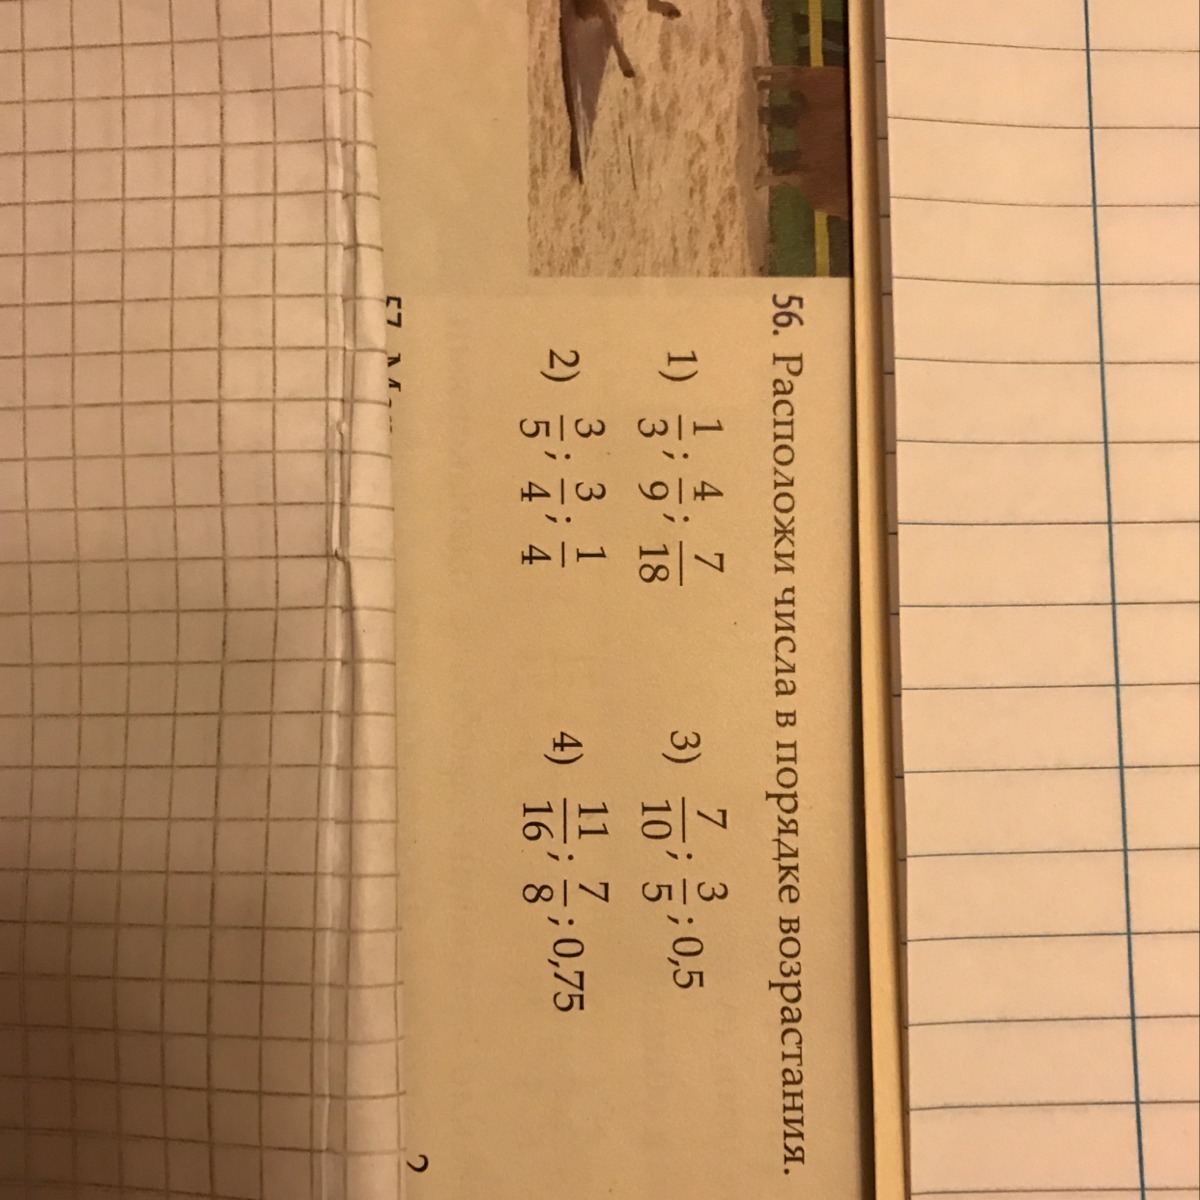 56. Расположи числа в порядке возрастания.
1) 1/3; 4/9; 7/18
2) 3/5; 3/4; 1/4
3) 7/10; 3/5; 0,5
4) 11/16; 7/8; 0,75
57.